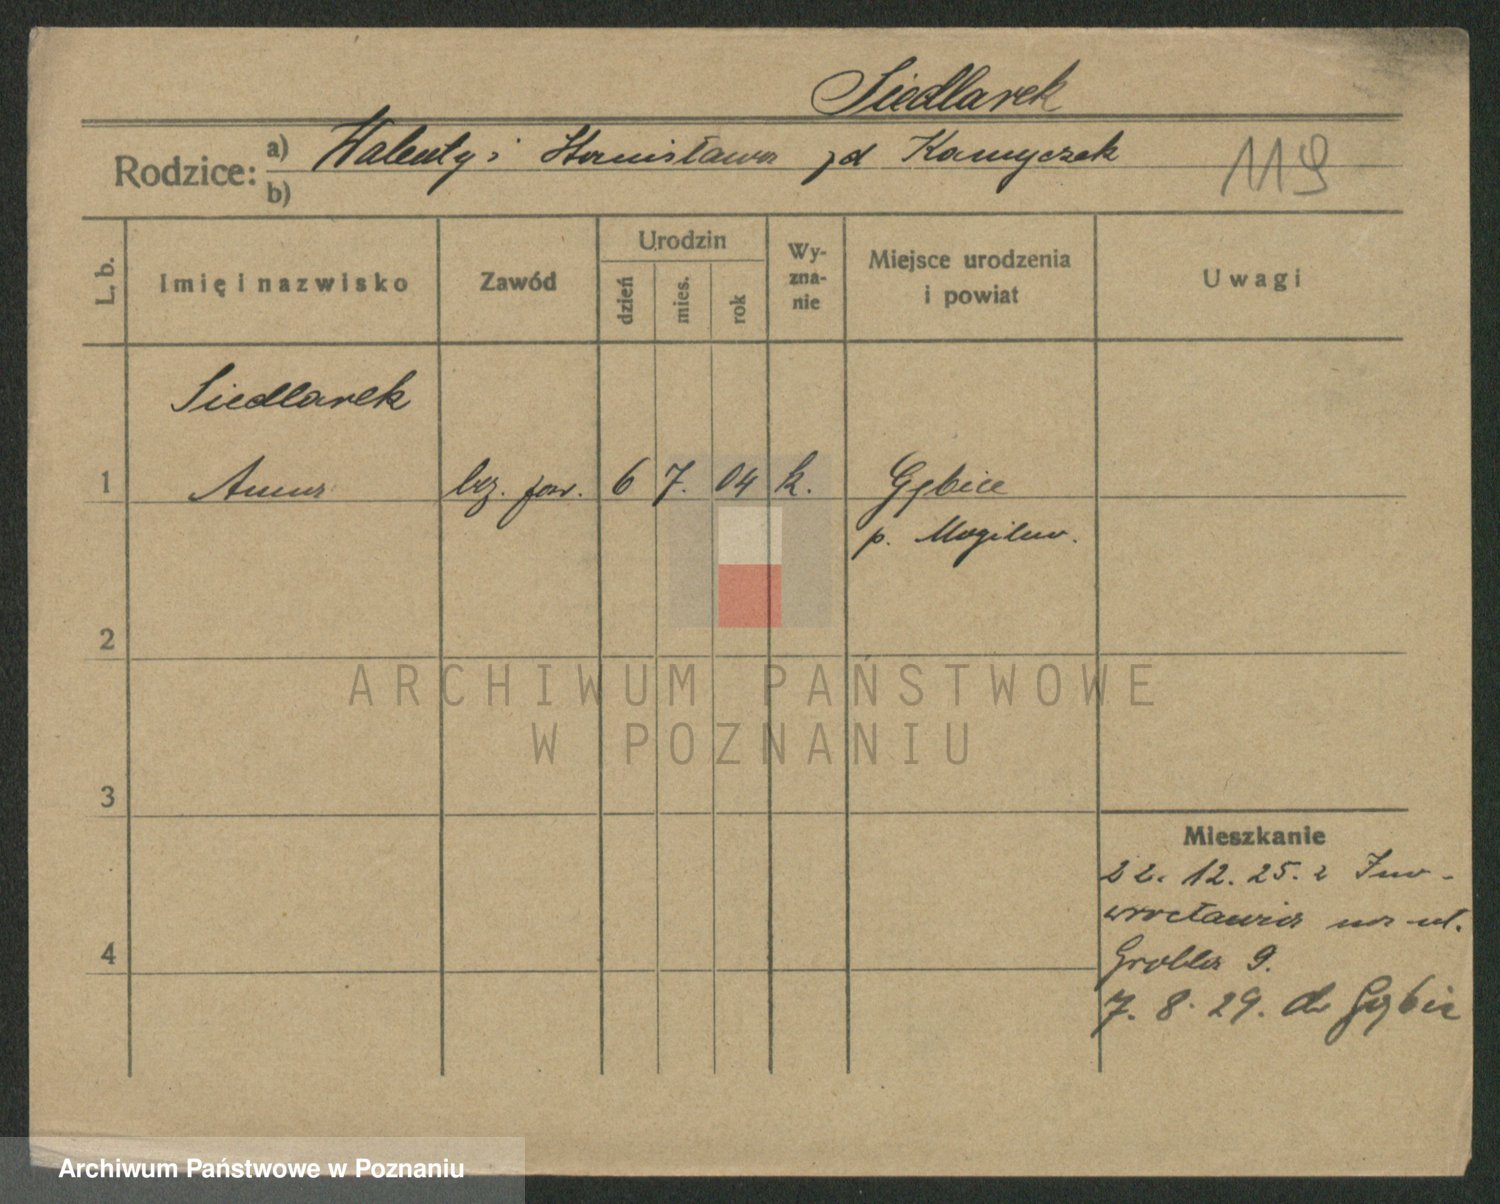 Siedlarek
Rodzice: a) Walenty i Stanisława zd Kamyczek
b)
119
L. b.
Imię i nazwisko
Zawód
Urodzin
dzień
mies.
rok
Wy-
zna-
nie
Miejsce urodzenia
i powiat
Uwagi
Siedlarek
1 Anna bez. zaw. 6 7. 04 k. Gębice
p. Mogilno.
2
ARCHIWUM PAŃSTWOWE
W POZNANIU
3
Mieszkanie
22. 12. 25. z Ino-
wrocławia na ul.
4
Grobla 9.
7. 8. 29. do Gębic
Archiwum Państwowe w Poznaniu